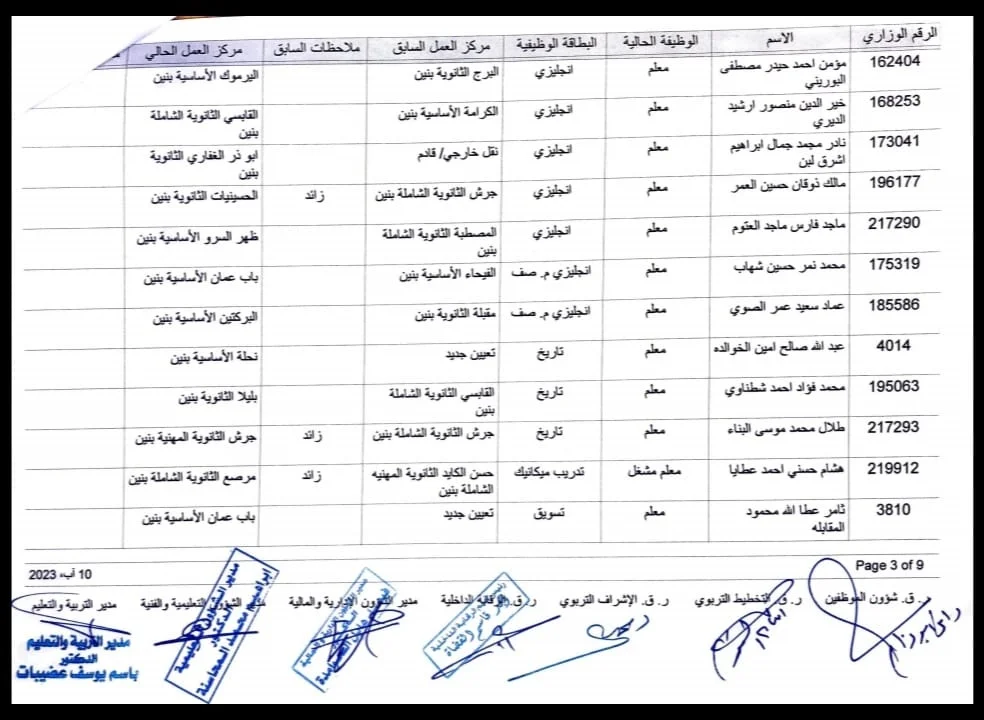 الرقم الوزاري الاسم الوظيفة الحالية البطاقة الوظيفية مركز العمل السابق ملاحظات السابق مركز العمل الحالي
162404 مؤمن احمد حيدر مصطفى معلم انجليزي البرج الثانوية بنين اليرموك الأساسية بنين
البوريني
168253 خير الدين منصور ارشيد معلم انجليزي الكرامة الأساسية بنين القابسي الثانوية الشاملة
الديري بنين
173041 نادر محمد جمال ابراهيم معلم انجليزي نقل خارجي/ قادم ابو ذر الغفاري الثانوية
اشرق لبن بنين
196177 مالك ذوقان حسين العمر معلم انجليزي جرش الثانوية الشاملة بنين زائد الحسينيات الثانوية بنين
217290 ماجد فارس ماجد العتوم معلم انجليزي المصطبة الثانوية الشاملة ظهر السرو الأساسية بنين
بنين
175319 محمد نمر حسين شهاب معلم انجليزي م. صف الفيحاء الأساسية بنين باب عمان الأساسية بنين
185586 عماد سعيد عمر الصوي معلم انجليزي م. صف مقبلة الثانوية بنين البركتين الأساسية بنين
4014 عبد الله صالح امين الخوالده معلم تاريخ تعيين جديد نحلة الأساسية بنين
195063 محمد فؤاد احمد شطناوي معلم تاريخ القابسي الثانوية الشاملة بليلا الثانوية بنين
بنين
217293 طلال محمد موسى البناء معلم تاريخ جرش الثانوية الشاملة بنين زائد جرش الثانوية المهنية بنين
219912 هشام حسني احمد عطايا معلم مشغل تدريب ميكانيك حسن الكايد الثانوية المهنيه زائد مرصع الثانوية الشاملة بنين
الشاملة بنين
3810 ثامر عطا الله محمود معلم تسويق تعيين جديد باب عمان الأساسية بنين
المقابله
Page 3 of 9 10 آب، 2023
ر. ق. شؤون الموظفين ر. ق. التخطيط التربوي ر. ق. الإشراف التربوي ر. ق. الرقابة الداخلية مدير الشؤون الإدارية والمالية مدير الشؤون التعليمية والفنية مدير التربية والتعليم
مدير الشؤون التعليمية
الدكتور
ابراهيم محمد المحاسنة
مدير التربية والتعليم
الدكتور
باسم يوسف عضيبات